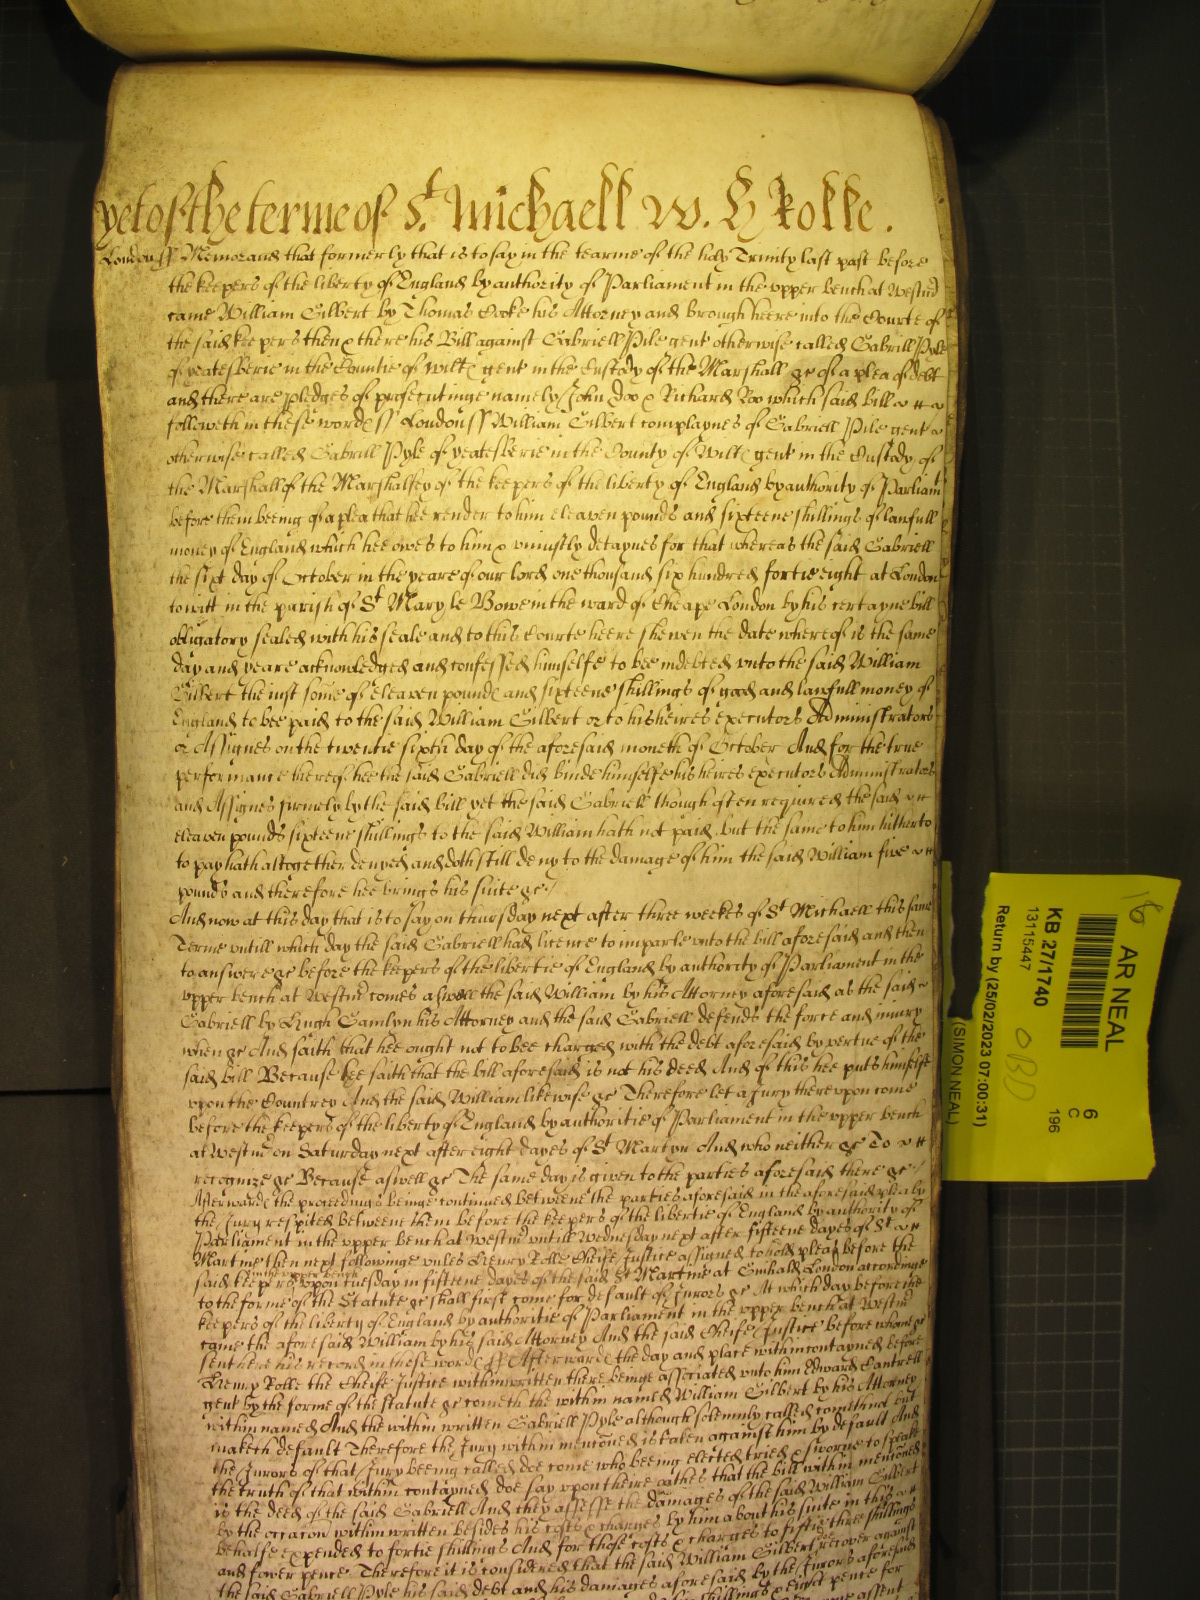 yet of the terme of St. Michaell W. H Rolle.
London ss Memorand that formerly that is to say in the tearme of the holy Trinity last past before
the keepers of the liberty of England by authority of Parliament in the upper bench at Westmr
came William Gilbert by Thomas Cooke his Attorney and brough heere into the Courte of
the said keepers then & there his Bill against Gabriell Pile gent otherwise called Gabrill Pyle
of yeatesberie in the Countie of Wilts gent in the Custody of the Marshall &c of a plea of debt
and there are pledges of prosecutinge namely John Doo & Richard Roo which said bill
followeth in these words ss London ss William Gilbert complaynes of Gabriell Pile gent
otherwise called Gabrill Pyle of yeatesberie in the County of Wilts gent in the Custody of
the Marshall of the Marshalsey of the keepers of the liberty of England by authority of Parliam
before them beeing of a plea that hee render to him eleaven pounds and sixteene shillings of lawfull
money of England which hee owes to him & uniustly detaynes for that whereas the said Gabriell
the sixt day of October in the yeare of our lord one thousand six hundred fortie eight at London
to witt in the parish of St Mary le Bowe in the ward of Cheape London by his certayne bill
obligatory sealed with his seale and to this Courte heere shewen the date whereof is the same
day and yeare acknowledged and confessed himselfe to bee indebted unto the said William
Gilbert the iust some of eleaven pounds and sixteene shillings of good and lawfull money of
England to bee paid to the said William Gilbert or to his heires executors Administrators
or Assignes on the twentie sixth day of the aforesaid moneth of October And for the true
performance thereof hee the said Gabriell did binde himselfe his heires executors Administrators
and Assignes firmely by the said bill yet the said Gabriell though often required the said
eleaven pounds sixteene shillings to the said William hath not paid but the same to him hitherto
to pay hath altogether denyed and doth still deny to the damage of him the said William five
pounds and therefore hee brings his suite &c /
And now at this day that is to say on thursday next after three weekes of St Michaell this same
Terme untill which day the said Gabriell had licence to imparle unto the bill aforesaid and then
to answere &c before the keepers of the libertie of England by authority of Parliament in the
upper bench at Westmr comes aswell the said William by his Attorney aforesaid as the said
Gabriell by Hugh Hamlyn his Attorney and the said Gabriell defends the force and iniury
when &c And saith that hee ought not to bee charged with the debt aforesaid by vertue of the
said bill Because hee saith that the bill aforesaid is not his deed And of this hee puts himselfe
upon the Countrey And the said William likewise &c Therefore let a Jury thereupon come
before the keepers of the liberty of England by authoritie of Parliament in the upper bench
at Westmr on Saturday next after eight dayes of St Martyn And who neither &c To
recognize &c Because aswell &c The same day is given to the parties aforesaid there &c /
Afterwards the proceedings beinge continued betweene the parties aforesaid in the aforesaid plea by
the Jury respited betweene them before the keepers of the libertie of England by authority of
Parliament in the upper bench at Westmr untill Wednesday next after fifteene dayes of St
Martine then next followinge unles Henry Rolle Cheife Justice assigned to hold pleas before the
said keepers in the upper bench upon tuesday in fifteene dayes of the said St Martine at Guihald London accordinge
to the forme of the Statute &c shall first come for default of Jurors &c At which day before the
keepers of the liberty of England by authoritie of Parliament in the upper bench at Westmr
came the aforesaid William by his said Attorney And the said Cheife Justice before whom &c
sent heere his record in these words ss Afterwards the day and place within contayned before
Henry Rolle the Cheife Justice within written there beinge associated unto him Edward Cantrell
gent by the forme of the statute &c cometh the within named William Gilbert by his Attorney
within named And the within written Gabriell Pyle although solemnly called cometh not but
maketh default Therefore the Jury within mencioned is taken against him by default And
the Jurors of that Jury beeing called doe come who beeing elected tried & sworne to speake
the truth of that within contayned doe say upon theire oathes that the bill within mencioned
is the deed of the said Gabriell And they assesse the damages of the said William Gilbert
by the occacon within written besides his costs & charges by him about his suite in this
behalfe expended to fortie shillings And for those costs & charges to fiftie three shillings
and fower pence Therefore it is considered that the said William Gilbert doe recover against
the said Gabriell Pyle his said debt and his damages aforesaid by the Jurors aforesaid
shillings & eight pence for
assent
AR NEAL
KB 27/1740
13115447
6
C
196
Return by (25/02/2023 07:00:31)
(SIMON NEAL)
OBD